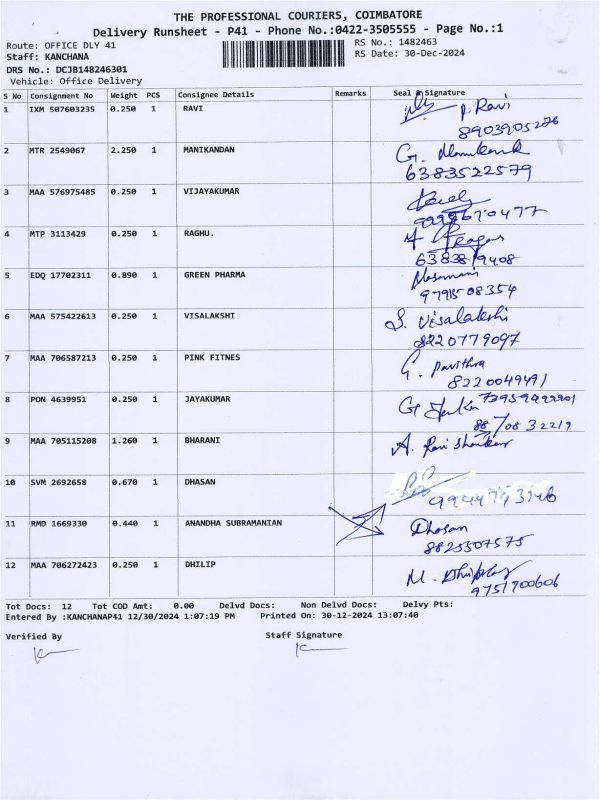 THE PROFESSIONAL COURIERS, COIMBATORE
Delivery Runsheet - P41 - Phone No.:0422-3505555 - Page No.:1
Route: OFFICE DLY 41 RS No.: 1482463
Staff: KANCHANA RS Date: 30-Dec-2024
DRS No.: DCJB148246301
Vehicle: Office Delivery
S No Consignment No Weight PCS Consignee Details Remarks Seal & Signature
1 IXM 507603235 0.250 1 RAVI P. Ravi
8903905276
2 MTR 2549067 2.250 1 MANIKANDAN G.
6383522579
3 MAA 576975485 0.250 1 VIJAYAKUMAR
4 MTP 3113429 0.250 1 RAGHU.
5 EDQ 17702311 0.890 1 GREEN PHARMA
6 MAA 575422613 0.250 1 VISALAKSHI S. Visalakshi
8220779097
7 MAA 706587213 0.250 1 PINK FITNES G. Pavithra
8220049491
8 PON 4639951 0.250 1 JAYAKUMAR
9 MAA 705115208 1.260 1 BHARANI A. Ravi Shankar
10 SVM 2692658 0.670 1 DHASAN
11 RMD 1669330 0.440 1 ANANDHA SUBRAMANIAN Dhasan
8825507575
12 MAA 706272423 0.250 1 DHILIP M.
9751700606
Tot Docs: 12 Tot COD Amt: 0.00 Delvd Docs: Non Delvd Docs: Delvy Pts:
Entered By :KANCHANAP41 12/30/2024 1:07:19 PM Printed On: 30-12-2024 13:07:40
Verified By Staff Signature